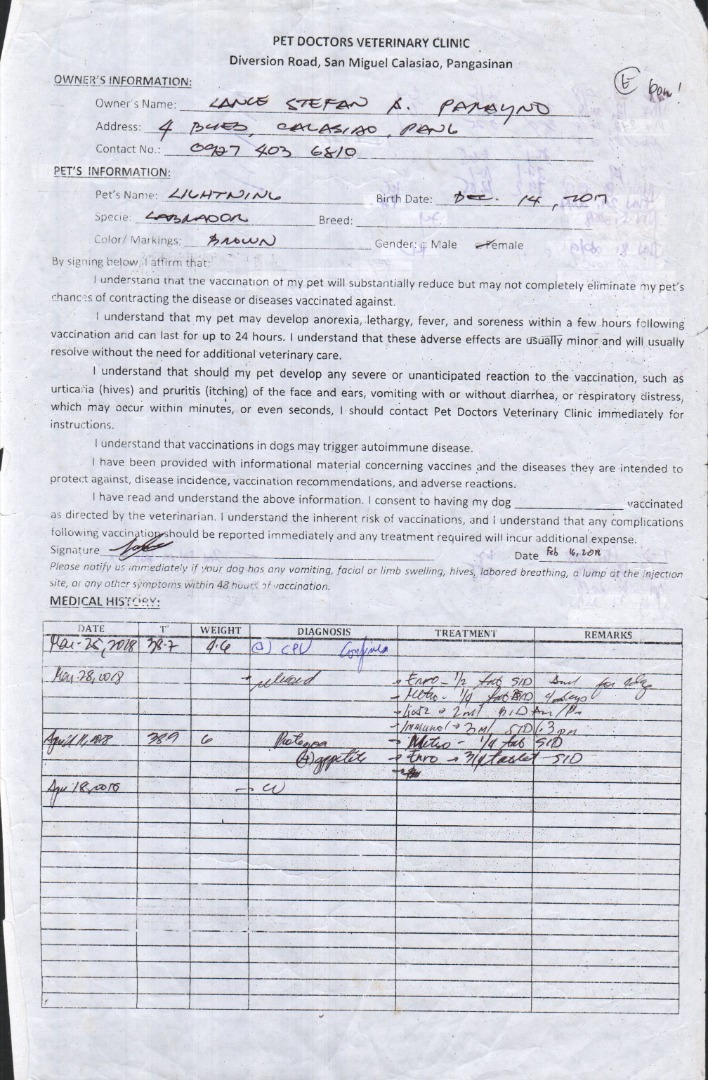 PET DOCTORS VETERINARY CLINIC
Diversion Road, San Miguel Calasiao, Pangasinan
E
OWNER'S INFORMATION:
Owner's Name: LANCE STEFAN A. PARAYNO
Address: 4 BUED, CALASIAO, PANG
Contact No.: 0927 403 6810
PET'S INFORMATION:
Pet's Name: LIGHTNING Birth Date: DEC. 14, 2017
Specie: LABRADOR Breed:
Color/ Markings: BROWN Gender: Male Female
By signing below, I affirm that:
I understand that the vaccination of my pet will substantially reduce but may not completely eliminate my pet's
chances of contracting the disease or diseases vaccinated against.
I understand that my pet may develop anorexia, lethargy, fever, and soreness within a few hours following
vaccination and can last for up to 24 hours. I understand that these adverse effects are usually minor and will usually
resolve without the need for additional veterinary care.
I understand that should my pet develop any severe or unanticipated reaction to the vaccination, such as
urticaria (hives) and pruritis (itching) of the face and ears, vomiting with or without diarrhea, or respiratory distress,
which may occur within minutes, or even seconds, I should contact Pet Doctors Veterinary Clinic immediately for
instructions.
I understand that vaccinations in dogs may trigger autoimmune disease.
I have been provided with informational material concerning vaccines and the diseases they are intended to
protect against, disease incidence, vaccination recommendations, and adverse reactions.
I have read and understand the above information. I consent to having my dog vaccinated
as directed by the veterinarian. I understand the inherent risk of vaccinations, and I understand that any complications
following vaccination should be reported immediately and any treatment required will incur additional expense.
Signature Date Feb 16, 2018
Please notify us immediately if your dog has any vomiting, facial or limb swelling, hives, labored breathing, a lump at the injection
site, or any other symptoms within 48 hours of vaccination.
MEDICAL HISTORY:
DATE T° WEIGHT DIAGNOSIS TREATMENT REMARKS
Mar-25, 2018 38.7 4.6 CPV Confined
Mar 28, 2018 → released → Enro - 1/2 tab SID
→ Metro - 1/4 tab BID
→ 2ml BID Am/Pm
→ Immunol → 3ml SID 3pm
April 11, 2018 38.9 6 → Metro - 1/4 tab SID
(+) appetite → Enro → 3/4 tablet SID
Apr 18, 2018